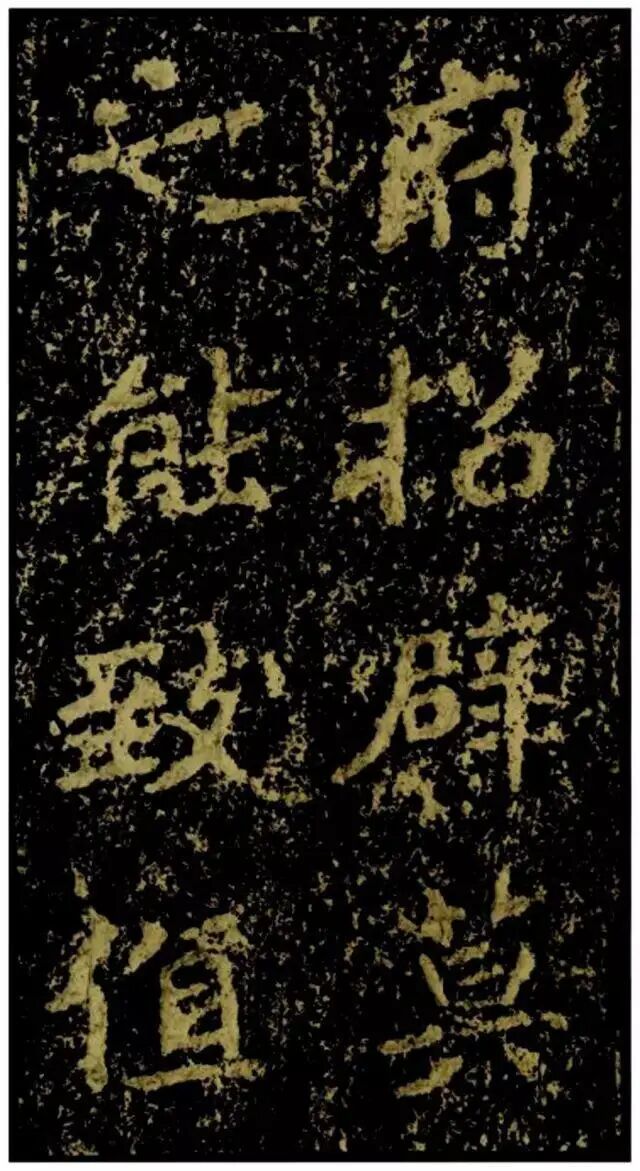 府招辟莫
之能致值